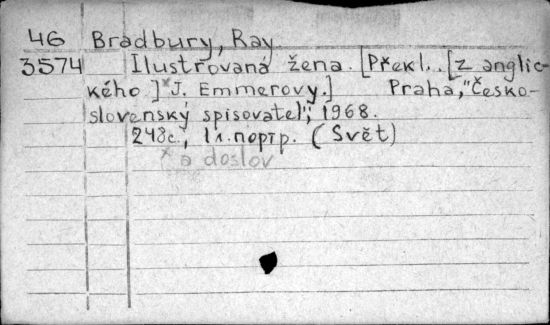 46 Bradbury, Ray
3574 Ilustrovaná žena. [Překl. [z anglic-
kého]* J. Emmerovy.] Praha, "Česko-
slovenský spisovatel", 1968.
248с., 1л.портр. (Svět)
* a doslov